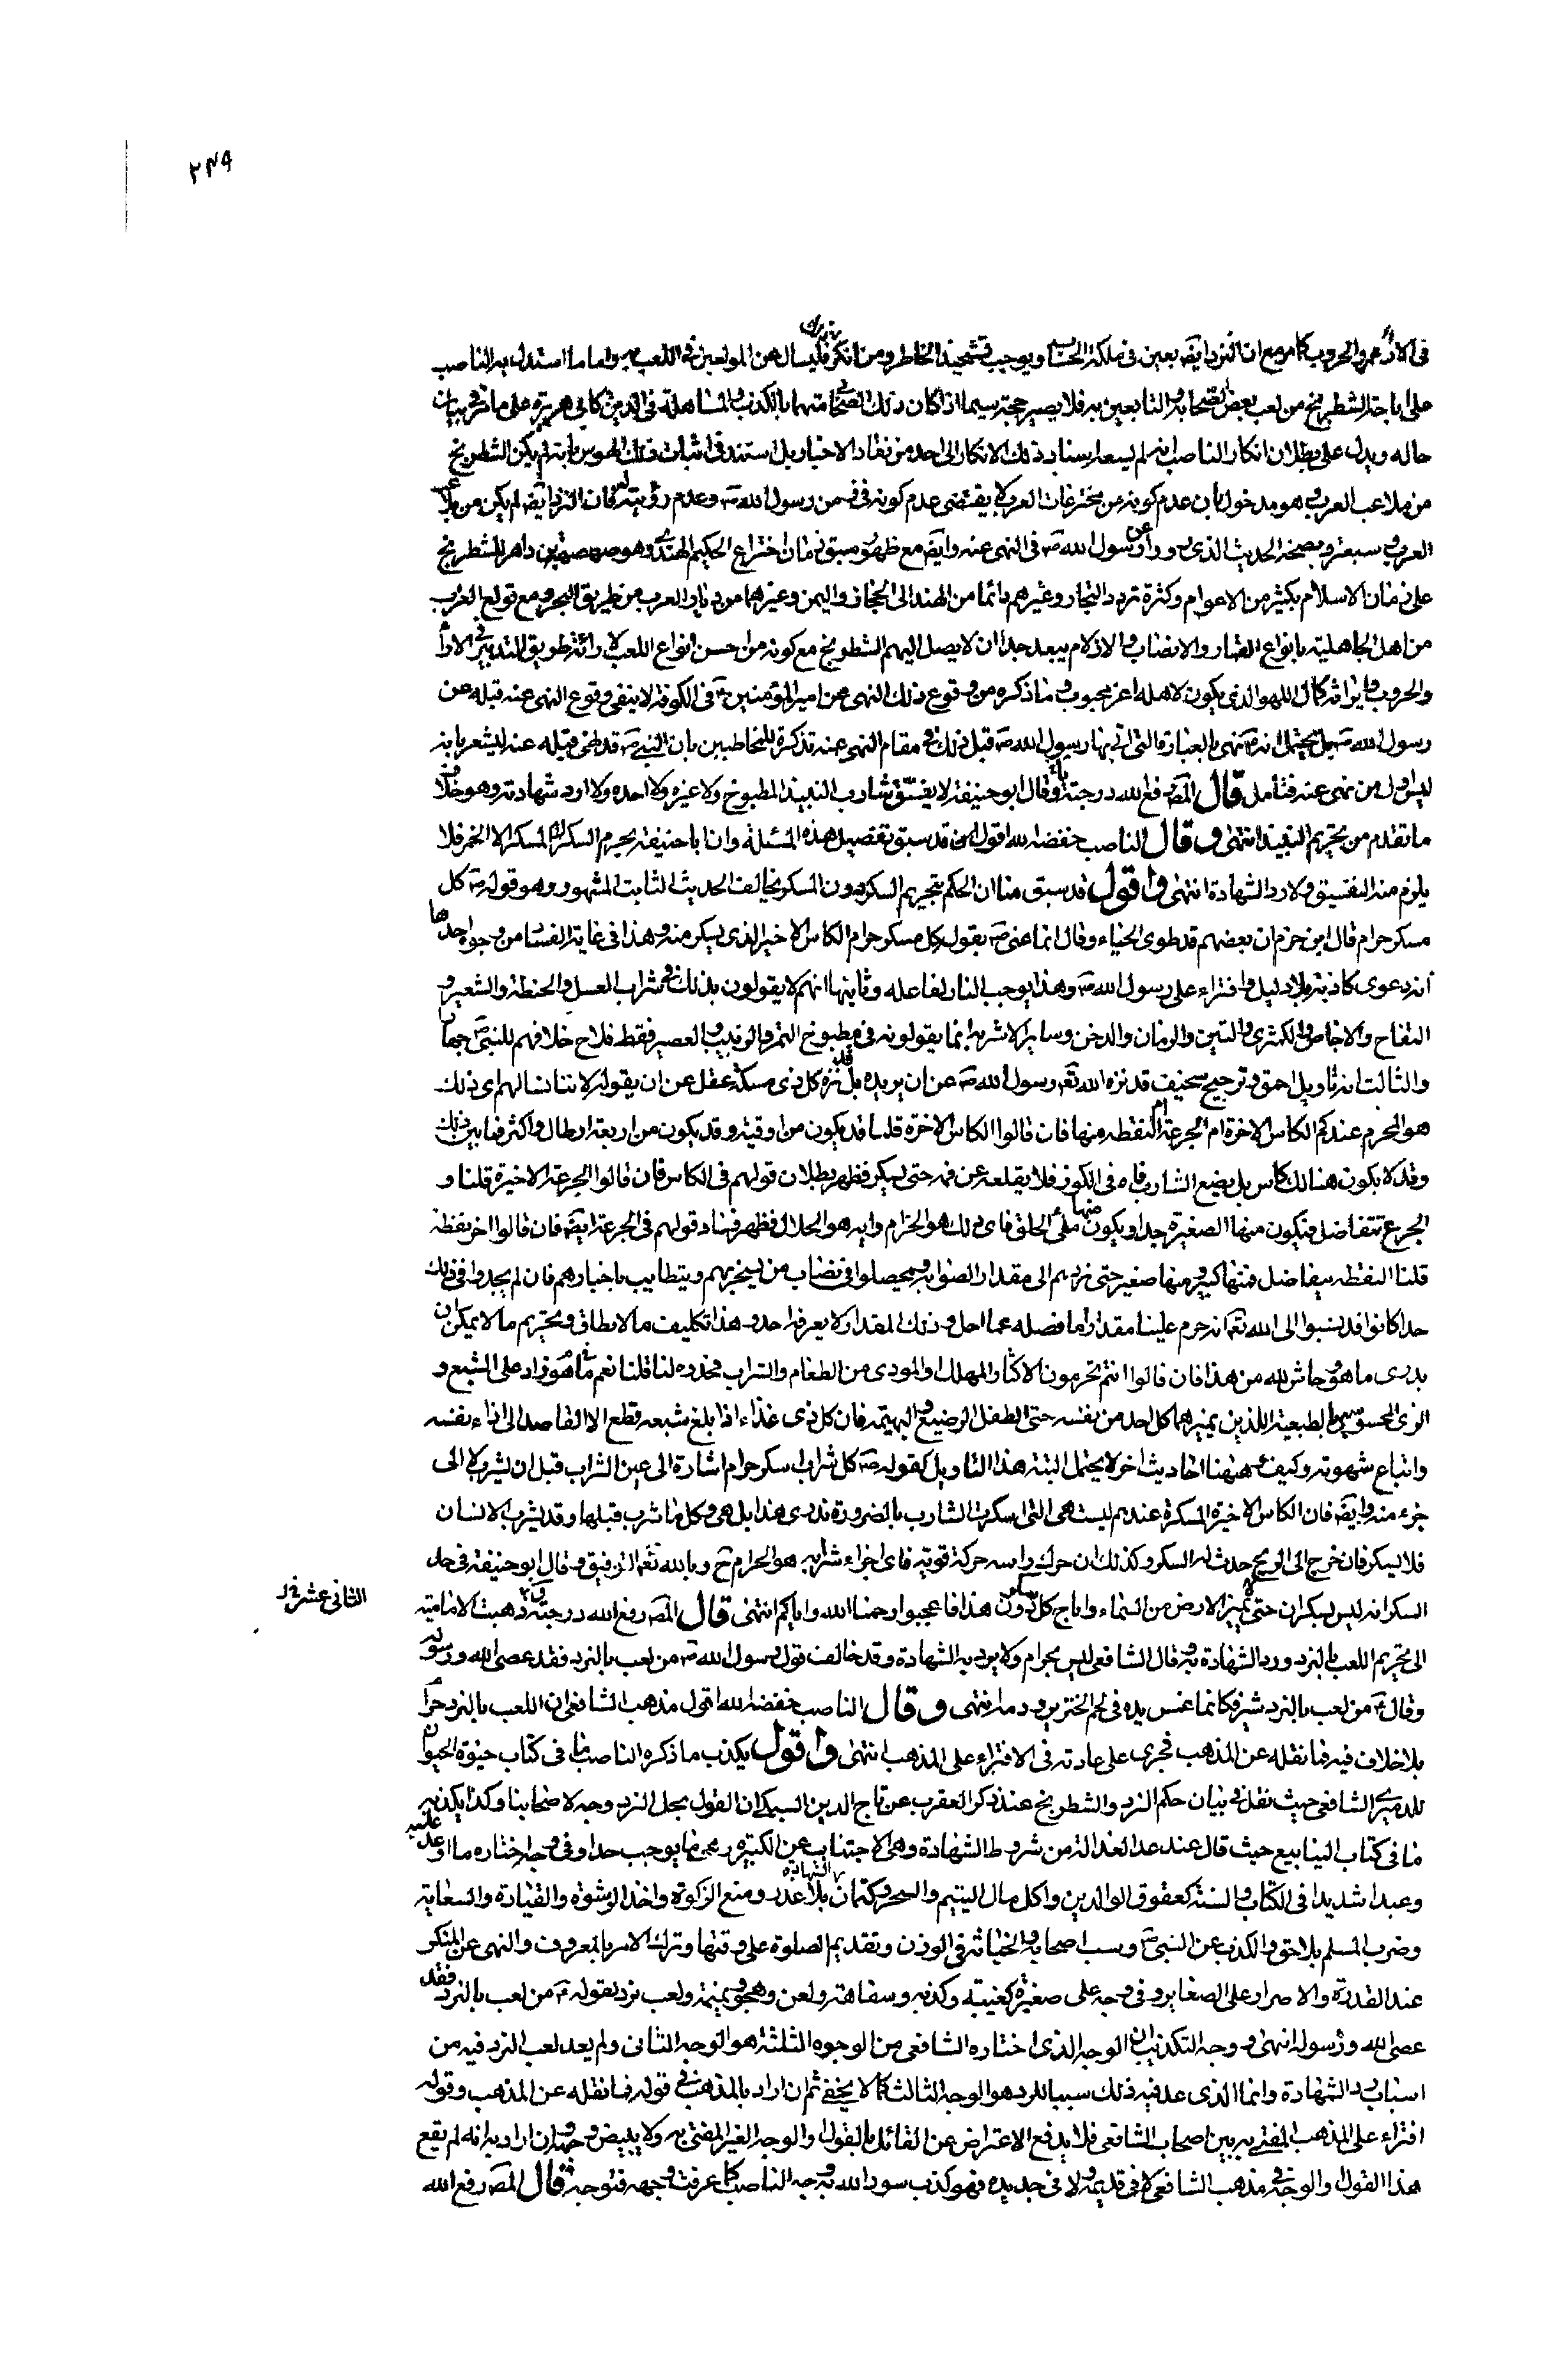 ٢٤٩
في الاراء والحروب كما مر مع ان النرد ايضا يعين في ملكة الحساب ويوجب تشحيذ الخاطر ومن انكر ذلك فليسال من المولعين في اللعب به واما ما استدل به الناصب
على اباحة الشطرنج من لعب بعض الصحابة والتابعين به فلا يصير حجة سيما اذا كان ذلك الصحابي متهما بالكذب والمساهلة في الدين كابي هريرة على ما مر في بيان
حاله ويدل على بطلان انكار الناصب انه لم يسعه اسناد ذلك الانكار الى احد من نقاد الاخبار بل استند في اثبات ذلك الهوس بانه لم يكن الشطرنج
من ملاعب العرب وهو مدخول بان عدم كونه من مخترعات العرب لا يقتضي عدم كونه في زمن رسول الله ص وعدم رؤيته له فان النرد ايضا لم يكن من ملاعب
العرب وبصحة الحديث الذي ورد عن رسول الله ص في النهي عنه وايضا مع ظهور سبق زمان اختراع الحكيم الهندي وهو صصه بن داهر للشطرنج
على زمان الاسلام بكثير من الاعوام وكثرة تردد التجار وغيرهم دائما من الهند الى الحجاز واليمن وغيرهما من ديار العرب من طريق البحر ومع تولع العرب
من اهل الجاهلية بانواع القمار والانصاب والازلام يبعد جدا ان لا يصل اليهم الشطرنج مع كونه من احسن انواع اللعب لاراءته طريق التدبير في الاراء
والحروب وايراثه كمال اللهو الذي يكون لاهله اعز محبوب وما ذكره من وقوع ذلك النهي من امير المؤمنين ع في الكوفة لا ينفي وقوع النهي عنه قبله عن
رسول الله ص بل يحتمل انه ع نهى بالعبارة التي اتى بها رسول الله ص قبل ذلك في مقام النهي عنه تذكرة للمخاطبين بان النبي ص قد نهى قبله عنه ليشعر بانه
ليس اول من نهى عنه فتامل قال المص رفع الله درجته يا وقال ابو حنيفة لا يفسق شارب النبيذ المطبوخ ولا غيره ولا احده ولا ارد شهادته وهو خلاف
ما تقدم من تحريم النبيذ انتهى وقال الناصب خفضه الله اقول قد سبق تفصيل هذه المسئلة وان ابا حنيفة يحرم السكر لا المسكر الا الخمر فلا
يلزم منه التفسيق ولا رد الشهادة انتهى واقول قد سبق منا ان الحكم بتحريم السكر دون المسكر يخالف الحديث الثابت المشهور وهو قوله ص كل
مسكر حرام قال ابن حزم ان بعضهم قد طوى الحياء وقال انما عنى ص بقول كل مسكر حرام الكاس الاخير الذي يسكر منه وهذا في غاية الفساد من وجوه احدها
انه دعوى كاذبة بلا دليل وافتراء على رسول الله ص وهذا يوجب النار لفاعله وثانيها انهم لا يقولون بذلك في شراب العسل والحنطة والشعير و
التفاح والاجاص والكمثرى والتين والرمان والدخن وساير الاشربة انما يقولونه في مطبوخ التمر والزبيب والعصير فقط فلاح خلافهم للنبي ص جهارا
والثالث انه تاويل احمق وترجيح سخيف قد نزه الله تع رسول الله ص عن ان يريده بل قد نزه كل ذي مسكة عقل عن ان يقوله لاننا نسالهم اي ذلك
هو المحرم عندكم الكاس الاخرة ام الجرعة ام النقطة منها فان قالوا الكاس الاخرة قلنا قد يكون من اوقية وقد يكون من اربعة ارطال واكثر فما بين ذلك
وقد لا يكون هنالك كاس بل يضع الشارب فاه في الكوز فلا يقلعه عن فمه حتى يسكر فظهر بطلان قولهم في الكاس فان قالوا الجرعة الاخيرة قلنا و
الجرع تتفاضل فتكون منها الصغيرة جدا ويكون منها ملئ الحلق فاي ذلك هو الحرام وايه هو الحلال فظهر فساد قولهم في الجرعة ايضا فان قالوا اخر نقطة
قلنا النقطة يتفاضل فمنها كبير ومنها صغير حتى نردهم الى مقدار الصوابة ويحصلوا في نصاب من يسخر بهم ويتطايب باخبارهم فان لم يجدوا في ذلك
حدا كانوا قد نسبوا الى الله تع انه حرم علينا مقدارا ما فصله عما احل وذلك المقدار لا يعرفه احد وهذا تكليف ما لا يطاق وتحريم ما لا يمكن ان
يدرى ما هو وحاش لله من هذا فان قالوا انتم تحرمون الاكثار المهلك او المؤذي من الطعام والشراب فحددوه لنا قلنا نعم هو ما زاد على الشبع و
الري المحسوس بالطبيعة اللذين يميزهما كل احد من نفسه حتى الطفل الرضيع والبهيمة فان كل ذي غذاء اذا بلغ شبعه قطع الا القاصد الى اذاء نفسه
واتباع شهوته وكيف وههنا احاديث اخر لا يحتمل البتة هذا التاويل كقوله ص كل شراب اسكر حرام اشارة الى عين الشراب قبل ان يشرب لا الى
جزء منه وايضا فان الكاس الاخيرة المسكرة عندهم ليست هي التي اسكرت الشارب بالضرورة ندري هذا بل هي وكل ما شرب قبلها وقد يشرب الانسان
فلا يسكر فان خرج الى الريح حدث له السكر وكذلك ان حرك راسه حركة قوية فاي اجزاء شرابه هو الحرام ح وبالله تع التوفيق وقال ابو حنيفة في حد
السكر انه ليس بسكران حتى لا يميز الارض من السماء واباح كل سكر دون هذا فاعجبوا رحمنا الله واياكم انتهى قال المص رفع الله درجته ذهبت الامامية
الى تحريم اللعب بالنرد ورد الشهادة به وقال الشافعي ليس بحرام ولا يرد به الشهادة وقد خالف قول رسول الله ص من لعب بالنرد فقد عصى الله ورسوله
وقال ع من لعب بالنرد شير فكانما غمس يده في لحم الخنزير ودمه انتهى وقال الناصب خفضه الله اقول مذهب الشافعي ان اللعب بالنرد حرام
بلا خلاف فيه فما نقله عن المذهب فجرى على عادته في الافتراء على المذهب انتهى واقول يكذب ما ذكره الناصب ما في كتاب حيوة الحيوان
للدميري الشافعي حيث نقل في بيان حكم النرد والشطرنج عند ذكر العقرب عن تاج الدين السبكي ان القول بحل النرد وجه لاصحابنا وكذا يكذبه
ما في كتاب الينابيع حيث قال عند عد العدالة من شروط الشهادة وهي الاجتناب عن الكبيرة بما يوجب حدا وفي وجه اختاره ما اوعد عليه
وعيدا شديدا في الكتاب والسنة كعقوق الوالدين واكل مال اليتيم والسحر وكتمان الشهادة بلا عذر ومنع الزكوة واخذ الرشوة والقيادة والسعاية
وضرب المسلم بلا حق والكذب عن النبي ص وسب اصحابه والخيانة في الوزن وتقديم الصلوة على وقتها وترك الامر بالمعروف والنهي عن المنكر
عند القدرة والاصرار على الصغاير وفي وجه على صغيرة كغيبة وكذب وسفاهة ولعن وهجو ونميمة ولعب نرد لقوله ع من لعب بالنرد فقد
عصى الله ورسوله انتهى ووجه التكذيب ان الوجه الذي اختاره الشافعي من الوجوه الثلثة هو الوجه الثاني ولم يعد لعب النرد فيه من
اسباب رد الشهادة وانما الذي عد فيه ذلك سببا للرد هو الوجه الثالث كما لا يخفى ثم ان اراد بالمذهب في قوله فما نقله عن المذهب وقوله
افتراء على المذهب المفتى به بين اصحاب الشافعي فلا يدفع الاعتراض عن القائل بالقول والوجه الغير المفتى به ولا يبيض وجهه وان اراد به انه لم يقع
هذا القول والوجه في مذهب الشافعي لا في قديمه ولا في جديده فهو كذب سود الله به وجه الناصب كما عرفت وجهه فتوجه قال المص رفع الله
الثاني عشر